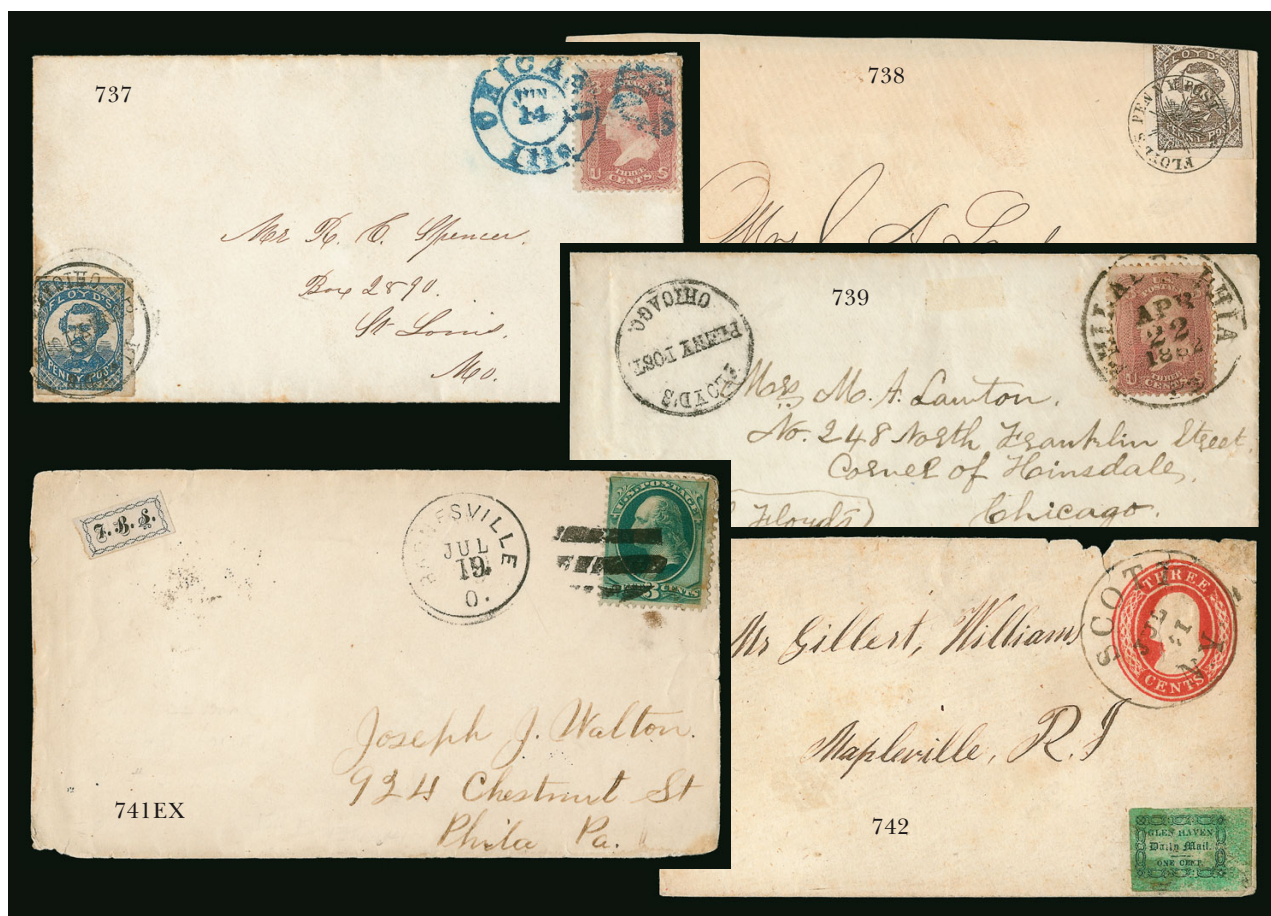 737
CHICAGO
JUN
14
ILLS
U S
THREE
CENTS
Mr R. C. Spencer.
Box 2890.
St Louis,
Mo.
FLOYD'S
PENNY POST
738
FLOYD'S
FLOYD'S PENNY POST
739
FLOYD'S
PENNY POST.
CHICAGO.
PHILADELPHIA
APR
22
1862
U S
THREE
CENTS
Mrs M. A. Lawton.
No. 248 North Franklin Street,
Corner of Hinsdale,
Chicago.
Floyds)
F. B. S.
BARNESVILLE
JUL
19
O.
U.S. POSTAGE
3 CENTS
Joseph J. Walton.
924 Chestnut St
Phila Pa.
741EX
SCOTT
JUL
N.Y
THREE
CENTS
Mr Gillert, William
Mapleville, R. I
742
GLEN HAVEN
Daily Mail.
ONE CENT.